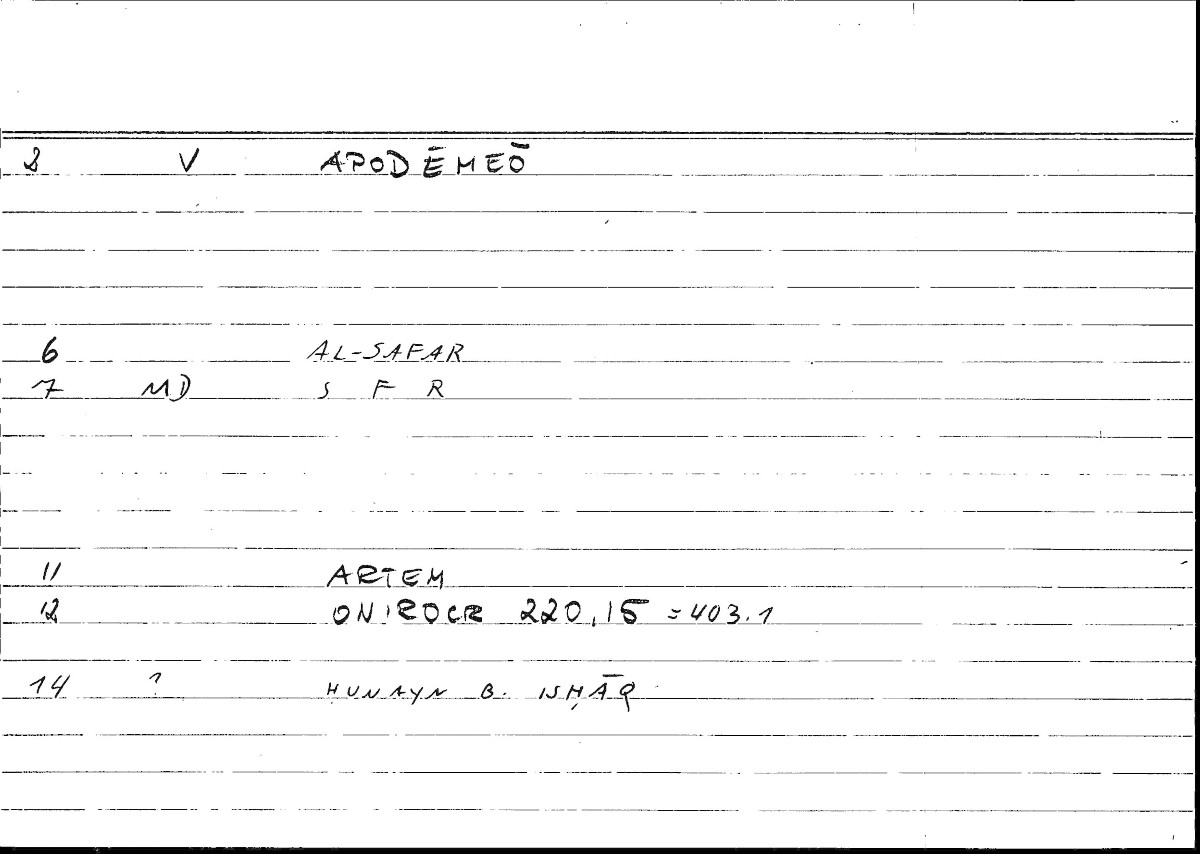 2 V APODĒMEŌ
6 AL-SAFAR
7 MD S F R
11 ARTEM
12 ONIROCR 220,15 = 403.1
14 ? ḤUNAYN B. ISḤĀQ